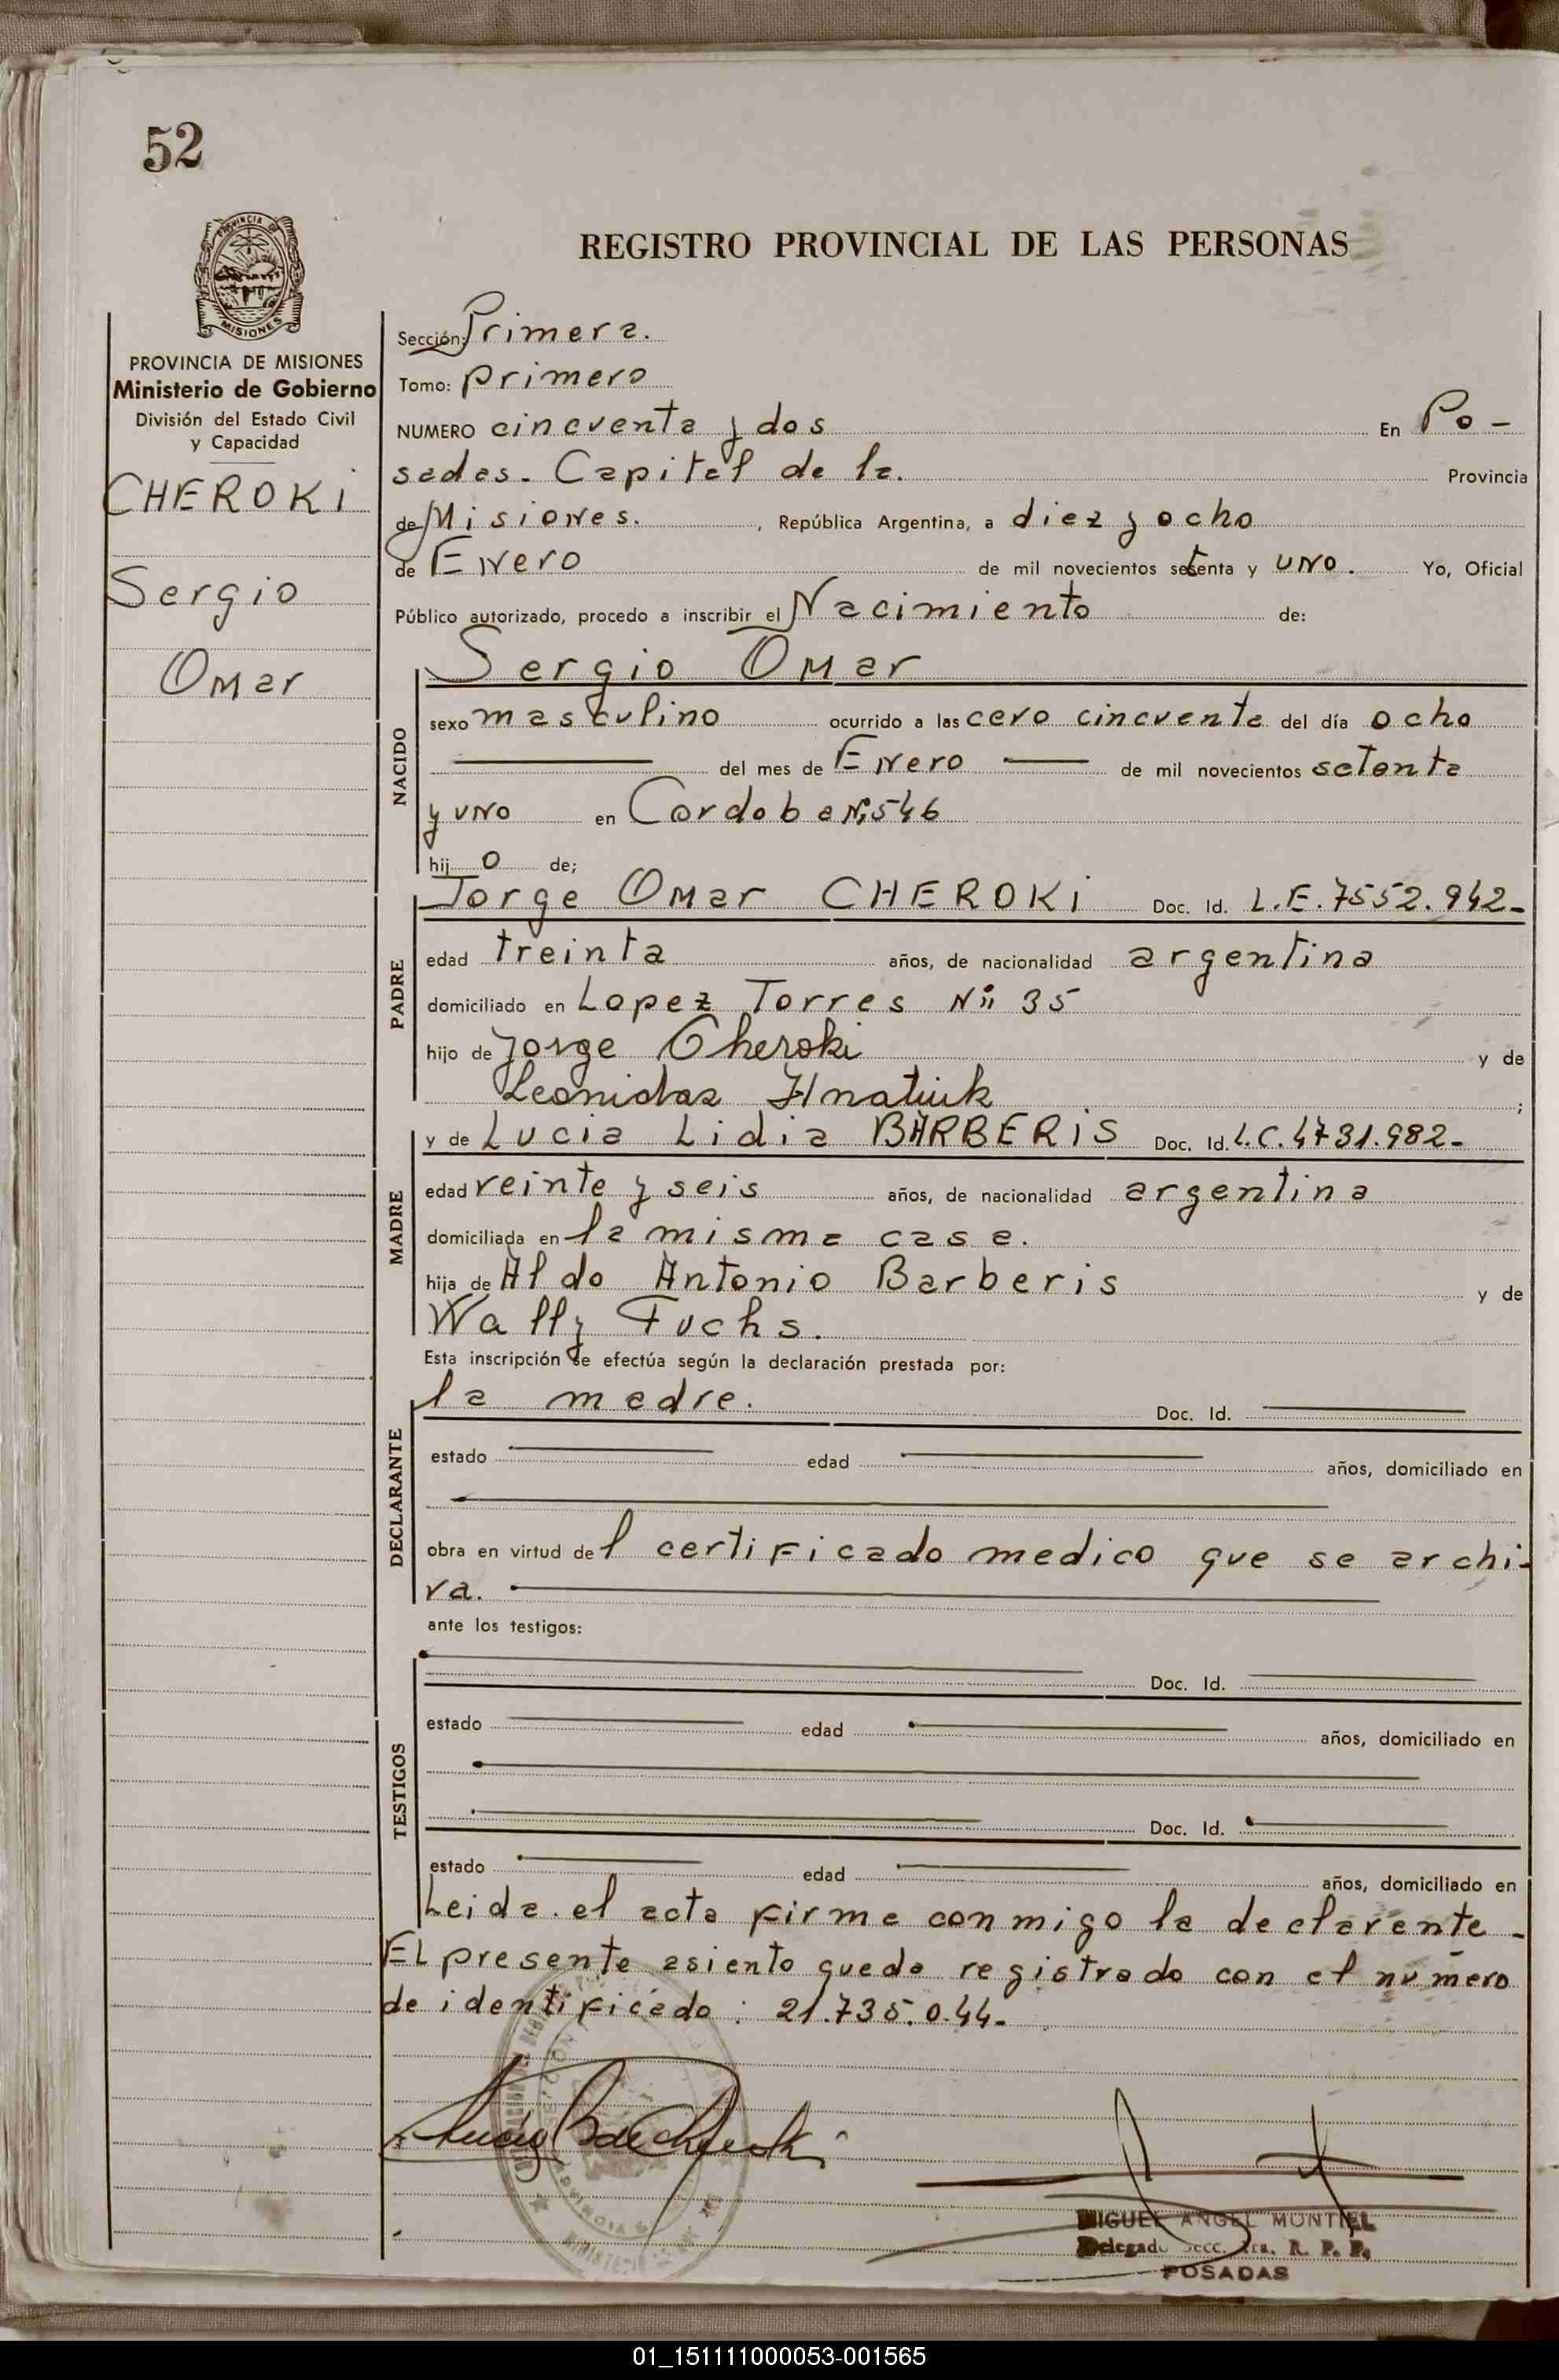 52
PROVINCIA DE
MISIONES
REGISTRO PROVINCIAL DE LAS PERSONAS
PROVINCIA DE MISIONES
Ministerio de Gobierno
División del Estado Civil
y Capacidad
CHEROKi
Sergio
Omar
Sección: Primera.
Tomo: primero
NUMERO cincuenta y dos En Po-
sadas. Capital de la. Provincia
de Misiones. , República Argentina, a diez y ocho
de Enero de mil novecientos setenta y uno. Yo, Oficial
Público autorizado, procedo a inscribir el Nacimiento de:
Sergio Omar
NACIDO
sexo masculino ocurrido a las cero cincuenta del día ocho
del mes de Enero de mil novecientos setenta
y uno en Cordoba Nº 546
hij o de;
PADRE
Jorge Omar CHEROKi Doc. Id. L.E. 7552.942-
edad treinta años, de nacionalidad argentina
domiciliado en Lopez Torres Nº 35
hijo de Jorge Cheroki y de
Leonidas Hnatiuk ;
MADRE
y de Lucia Lidia BARBERiS Doc. Id. L.C. 4731.982-
edad veinte y seis años, de nacionalidad argentina
domiciliada en la misma casa.
hija de Aldo Antonio Barberis y de
Wally Fuchs.
Esta inscripción se efectúa según la declaración prestada por:
DECLARANTE
la madre. Doc. Id.
estado edad años, domiciliado en
obra en virtud del certificado medico que se archi-
va.
ante los testigos:
TESTIGOS
Doc. Id.
estado edad años, domiciliado en
Doc. Id.
estado edad años, domiciliado en
Leida el acta firma conmigo la declarante-
El presente asiento queda registrado con el número
de identificado: 21.735.044-
MIGUEL ANGEL MONTIEL
Delegado Secc. 1ra. R. P. P.
POSADAS
01_151111000053-001565